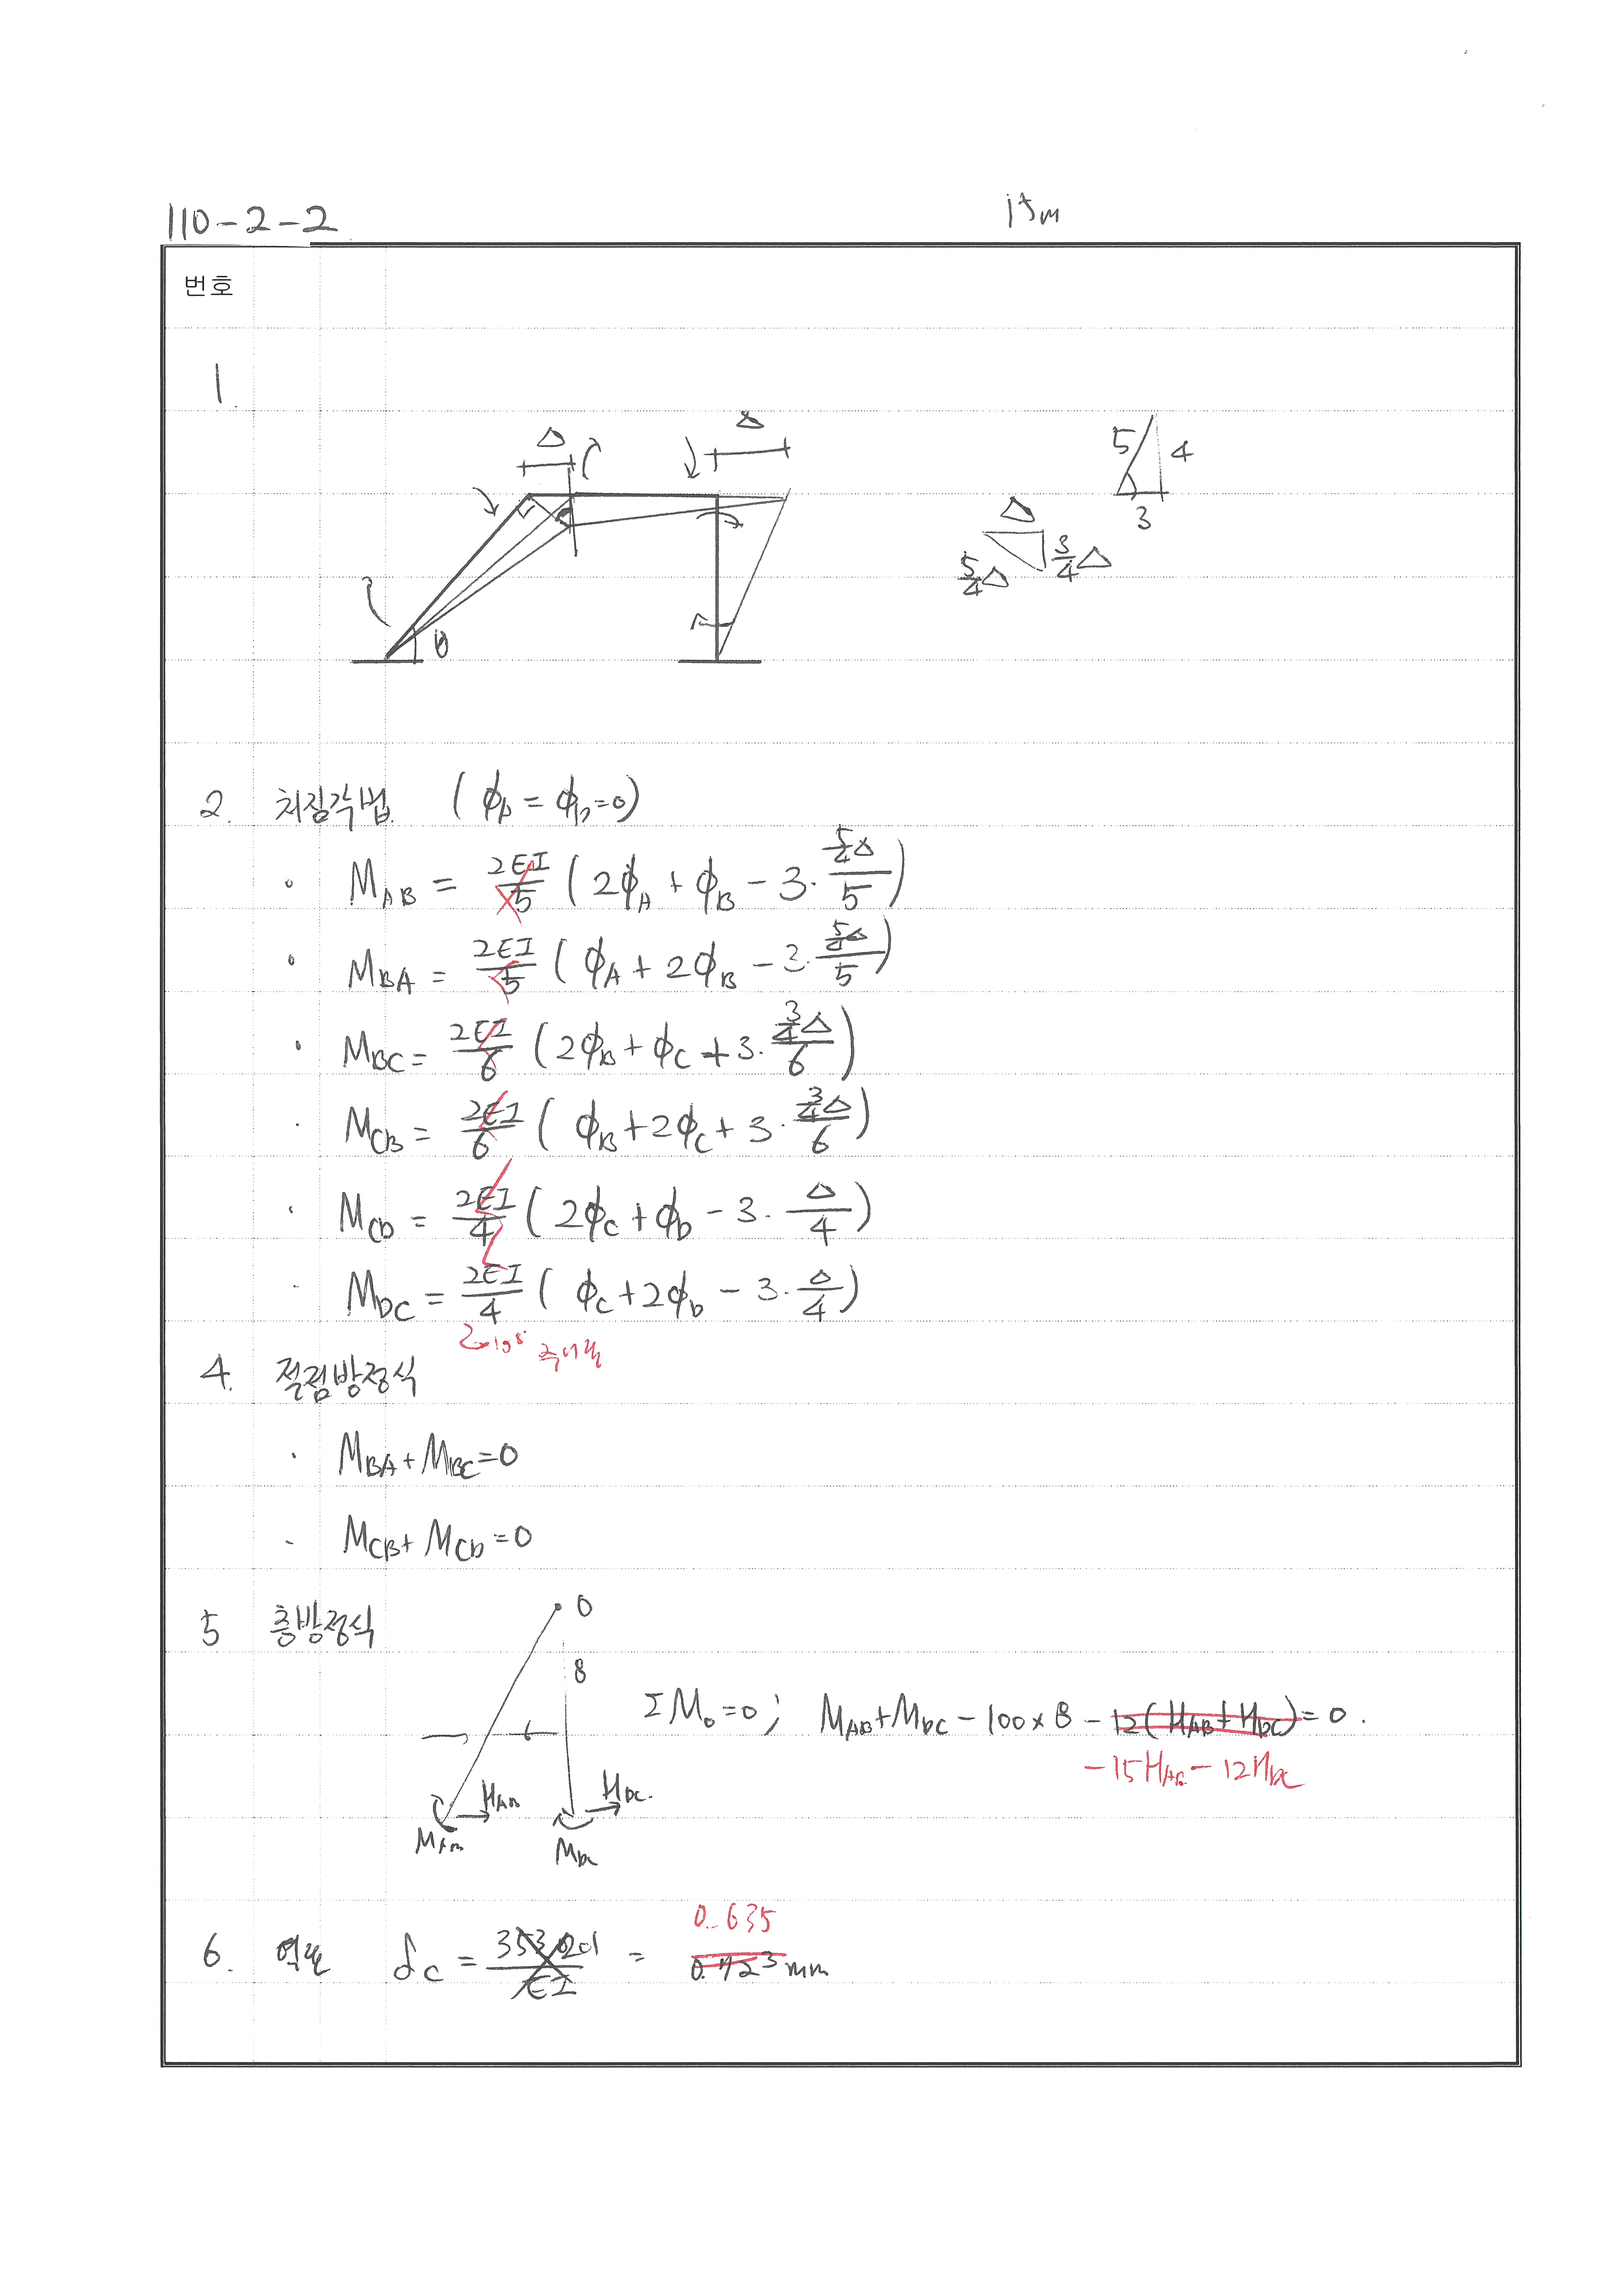 110-2-2
번호
1.
Δ Δ
5 4
3
Δ
5/4Δ 3/4Δ
θ
2. 처짐각법 (φA = φD = 0)
· MAB = 2EI/5 (2φA + φB - 3· 5/4Δ/5)
· MBA = 2EI/5 (φA + 2φB - 3· 5/4Δ/5)
· MBC = 2EI/6 (2φB + φC + 3· 3/4Δ/6)
· MCB = 2EI/6 (φB + 2φC + 3· 3/4Δ/6)
· MCD = 2EI/4 (2φC + φD - 3· Δ/4)
· MDC = 2EI/4 (φC + 2φD - 3· Δ/4)
4. 절점방정식
· MBA + MBC = 0
· MCB + MCD = 0
5 층방정식
O
8
ΣMo = 0; MAB + MDC - 100×8 - 12(HAB + HDC) = 0.
-15HAB - 12HDC
HAB HDC.
MAB MDC
0.635
6. δC = /EI = 0.723 mm